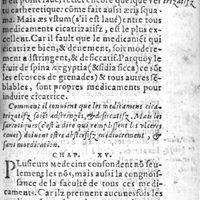 tu catherique: côme fait aussi le squa-
ma. Mais æs vstum (s'il est laué) entre tous
medicaments cicatrizatifz, est le plus
excellent. Car il fault que le medicamẽt qui
cicatrize bien, & deuement, soit modere-
ment astringent, & desiccatif. Parquoy le
fruit de spina Ægyptia (& sidia sicca) & nõ
les escorces de grenades) & tous autres sẽ-
blables, sont propres medicaments pour
induire cicatrice.
Commãt il conuient que les medicaments cica-
trizatifz soiẽt adstringẽts, & desiccatifz. Mais les
sarcotiques (c'est à dire qui remplissent les vlceres
caues) doiuent estre abstersifz mediocrement, &
sans mordication.
CHAP. XV.
PLusieurs Medecins consondent nõ seu-
lement les nõs, mais aussi la congnoiss-
ance de la faculté de tous ces medi-
caments. Car ilz prennent aucunesfois les